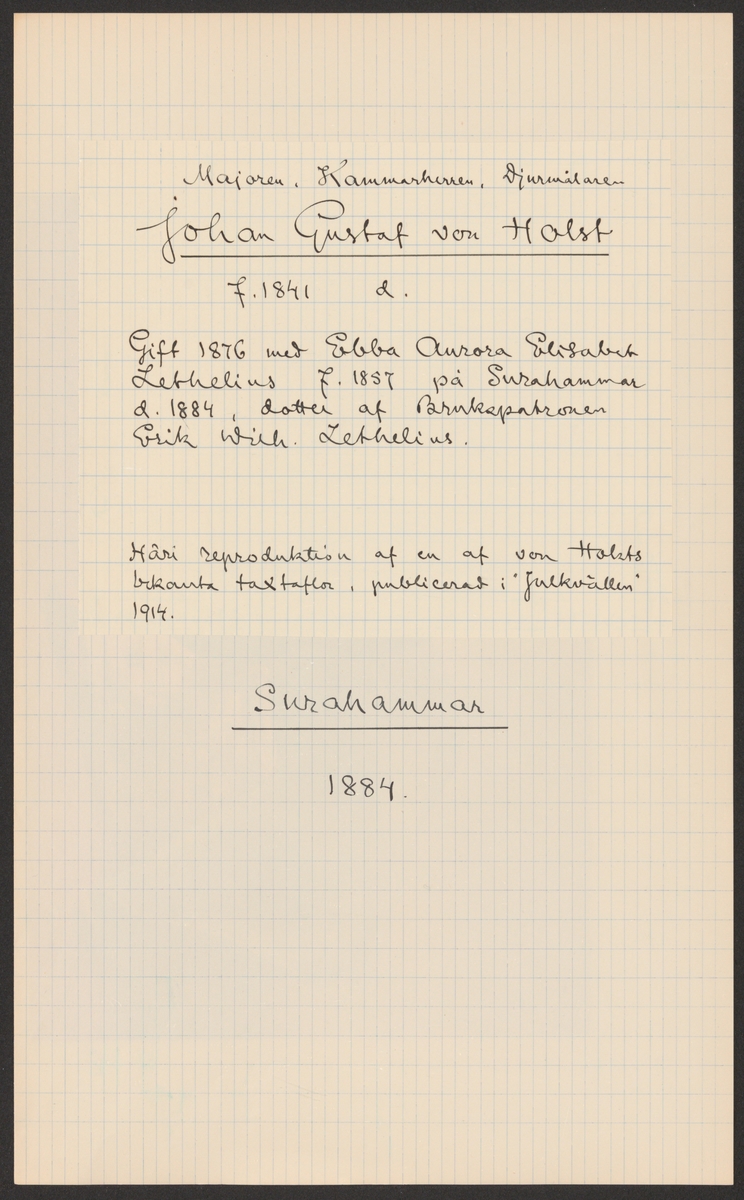 Majoren, Kammarherren, Djurmålaren
Johan Gustaf von Holst
f. 1841 d.
Gift 1876 med Ebba Aurora Elisabet
Zethelius f. 1857 på Surahammar
d. 1884, dotter af Brukspatronen
Erik Wilh. Zethelius.
Häri reproduktion af en af von Holsts
bekanta taxtaflor, publicerad i "Julkvällen"
1914.
Surahammar
1884.